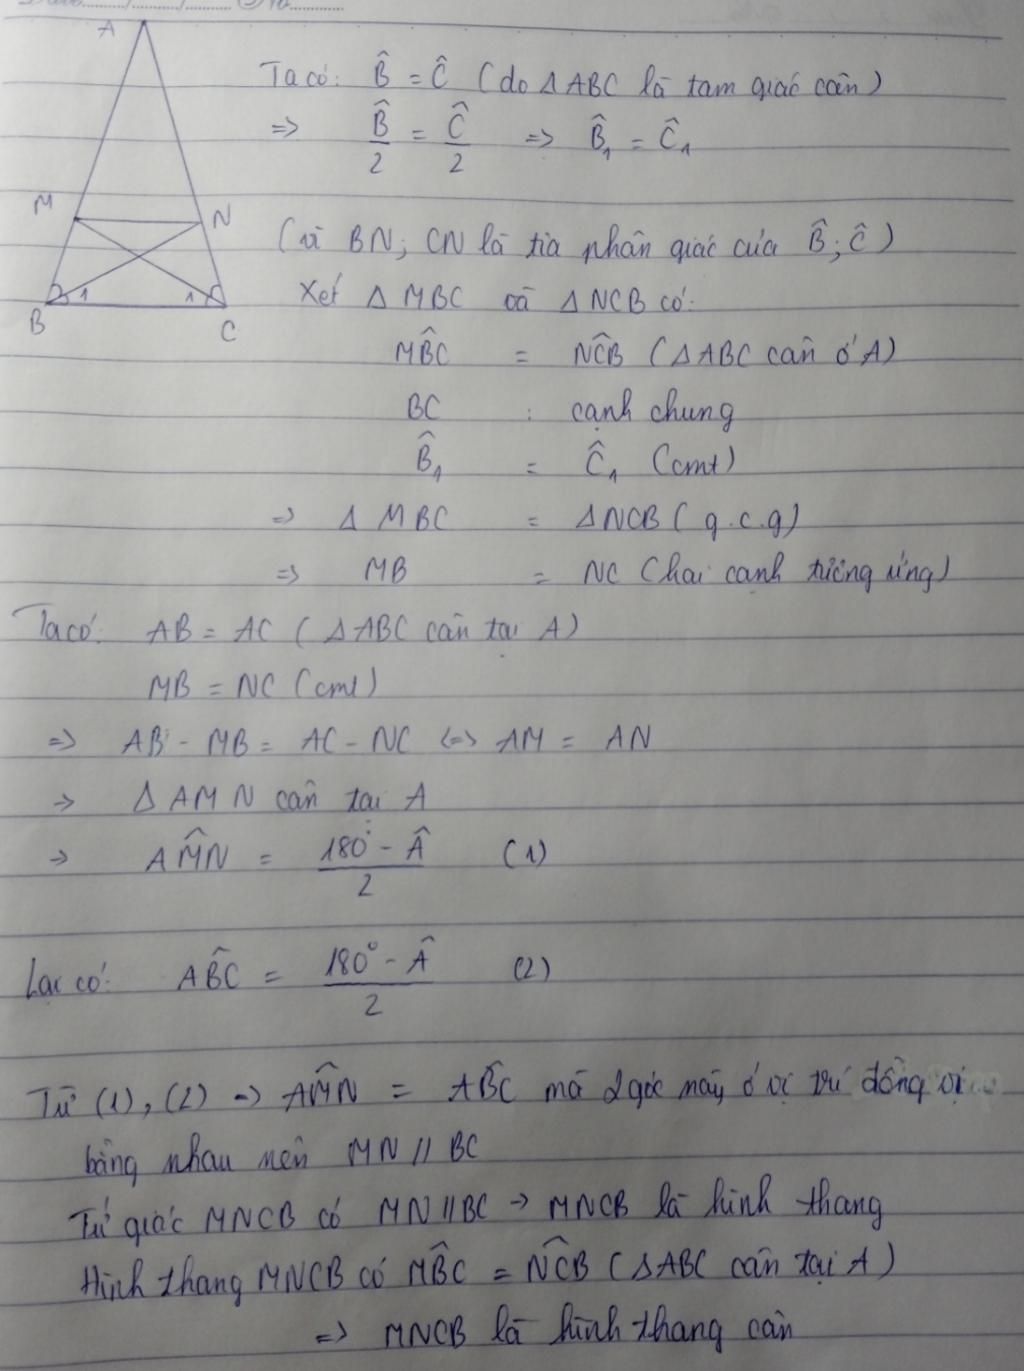 A
Ta có: B̂ = Ĉ (do ΔABC là tam giác cân)
=> B̂/2 = Ĉ/2 => B̂₁ = Ĉ₁
M N
(vì BN; CN là tia phân giác của B̂; Ĉ)
B 1 1 C
Xét Δ MBC và Δ NCB có:
MB̂C = NĈB (Δ ABC cân ở A)
BC : cạnh chung
B̂₁ = Ĉ₁ (cmt)
=> Δ MBC = ΔNCB (g.c.g)
=> MB = NC (hai cạnh tương ứng)
Ta có: AB = AC (Δ ABC cân tại A)
MB = NC (cmt)
=> AB - MB = AC - NC <=> AM = AN
-> Δ AMN cân tại A
-> AM̂N = (180° - Â)/2 (1)
Lại có: AB̂C = (180° - Â)/2 (2)
Từ (1), (2) => AM̂N = AB̂C mà 2 góc này ở vị trí đồng vị
bằng nhau nên MN // BC
Tứ giác MNCB có MN // BC -> MNCB là hình thang
Hình thang MNCB có MB̂C = NĈB (ΔABC cân tại A)
=> MNCB là hình thang cân